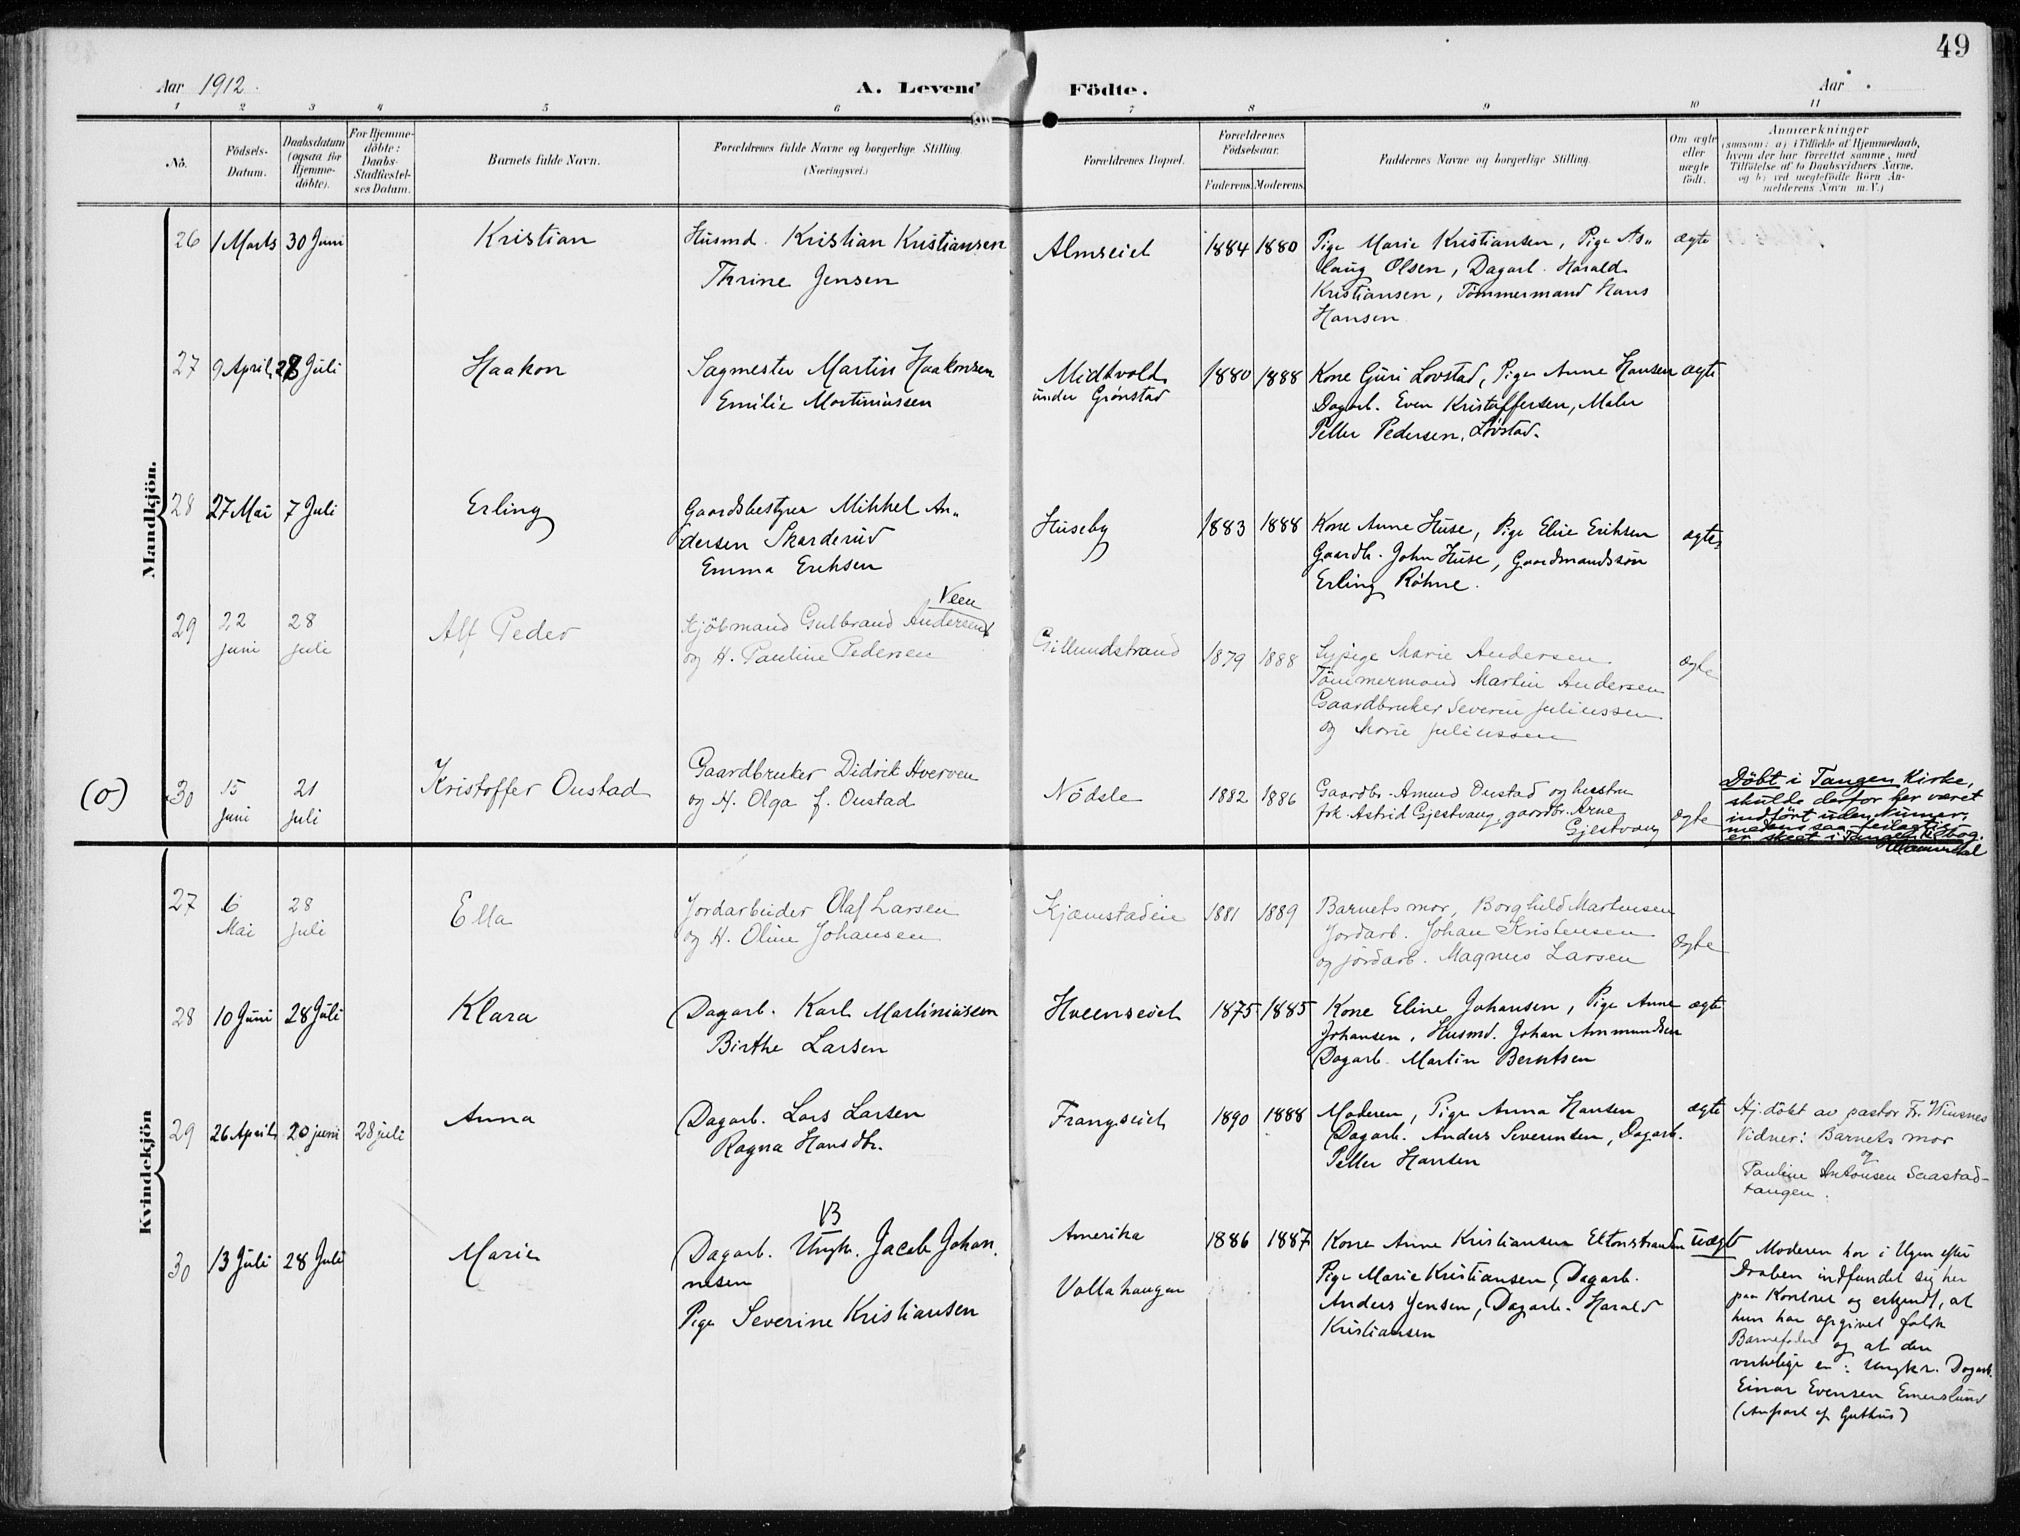 49
Aar 1912.
A. Levend
Födte.
Aar
1 2 3 4 5 6 7 8 9 10 11
No.
Födsels-
Datum.
Daabsdatum
(ogsaa for
Hjemme-
döbte).
For Hjemme-
döbte:
Daabs-
Stadfæstel-
ses Datum.
Barnets fulde Navn.
Forældrenes fulde Navne og borgerlige Stilling.
(Næringsvei.)
Forældrenes Bopæl.
Forældrenes
Födselsaar.
Faderens. Moderens.
Faddernes Navne og borgerlige Stilling.
Om ægte
eller
uægte
födt.
Anmærkninger
(saasom: a) i Tilfælde af Hjemmedaab,
hvem der har forrettet samme, med
Tilföielse af to Daabsvidners Navne.
og b) ved uægtefödte Börn An-
melderens Navn m. V.)
Mandkjön.
26 1 Marts 30 Juni
Kristian
Husmd. Kristian Kristiansen
Thrine Jensen
Almseiet
1884 1880
Pige Marie Kristiansen, Pige As„
laug Olsen, Dagarb. Harald
Kristiansen, Tømmermand Hans
Hansen
ægte
27 9 April 28 Juli
Haakon
Sagmester Martin Haakonsen
Emilie Martiniussen
Midtvold
under Grønstad
1880 1888
Kone Guri Lovstad, Pige Anne Hansen
Dagarb. Even Kristoffersen, Maler
Petter Pedersen, Lovstad.
ægte
28 27 Mai 7 Juli
Erling
Gaardsbestyrer Mikkel An„
dersen Skarderud
Emma Eriksen
Huseby
1883 1888
Kone Anne Huse, Pige Elise Eriksen
Gaardb. John Huse, Gaardmandssøn
Erling Röhne.
ægte
29 22 Juni 28 Juli
Alf Peder
Veen
Kjöbmand Gulbrand Andersen
og H. Pauline Pedersen
Gillundstrand
1879 1888
Sypige Marie Andersen
Tömmermand Martin Andersen
Gaardbruker Severin Juliussen
og Marie Juliussen
ægte
(o) 30 15 Juni 21 Juli
Kristoffer Oustad
Gaardbruker Didrik Hverven
og H. Olga f. Oustad
Nödsle
1882 1886
Gaardbr. Amund Oustad og hustru
frk. Astrid Gjestvang, gaardbr. Arne
Gjestvang
ægte
Döbt i Tangen Kirke,
skulde derfor her været
indført uden Numer,
medens saa feilagtig
er skeet i Tangen Kbog.
Kvindekjön
27 6 Mai 28 Juli
Ella
Jordarbeider Olaf Larsen
og H. Oline Johansen
Kjæmstadeie
1881 1889
Barnets mor, Borghild Martensen
Jordarb. Johan Kristensen
og jordarb. Magnus Larsen
ægte
28 10 Juni 28 Juli
Klara
Dagarb. Karl Martiniussen
Birthe Larsen
Hveenseiet
1875 1885
Kone Eline Johansen, Pige Anne
Johansen, Husmd. Johan Ammundsen
Dagarb. Martin Berntsen
ægte
29 26 April 20 juni 28 juli
Anna
Dagarb. Lars Larsen
Ragna Hansdtr.
Frangseiet
1890 1888
Moderen, Pige Anna Hansen
Dagarb. Anders Severinsen, Dagarb.
Petter Hansen
ægte
Hj. döbt av pastor Fr. Winsnes
Vidner: Barnets mor
og
Pauline Antonsen Saastad-
tangen.
30 13 Juli 28 Juli
Marie
Dagarb. Ungk. Jacob Johan.
nesen
Pige Severine Kristiansen
Amerika
Vollahaugen
1886 1887
Kone Anne Kristiansen Ektonstranden
Pige Marie Kristiansen, Dagarb.
Anders Jensen, Dagarb. Harald
Kristiansen
uægt
Moderen har i Ugen efter
Draben indfundet sig her
paa Kontoret og erkjendt, at
hun har opgivet falsk
Barnefader og at den
virkelige er: Ungkr. Dagarb.
Einar Evensen Emerslund